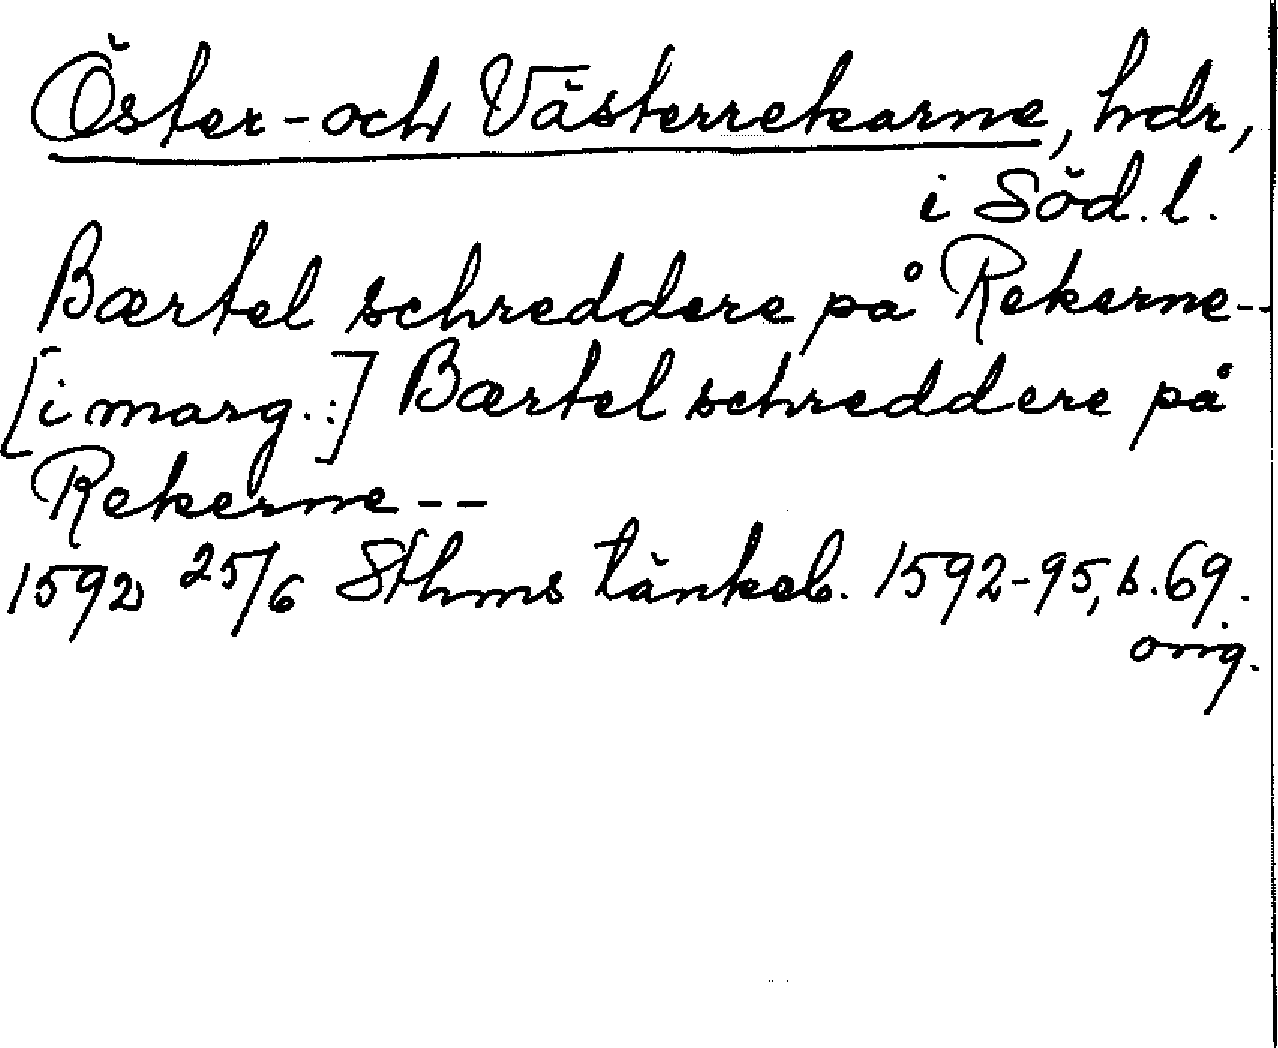 Öster- och Västerrekarne, hdr,
i Söd. l.
Bærtel schreddere på Rekerne--
[i marg.:] Bærtel schreddere på
Rekerne--
1592 25/6 Sthms tänkeb. 1592-95, s. 69.
orig.